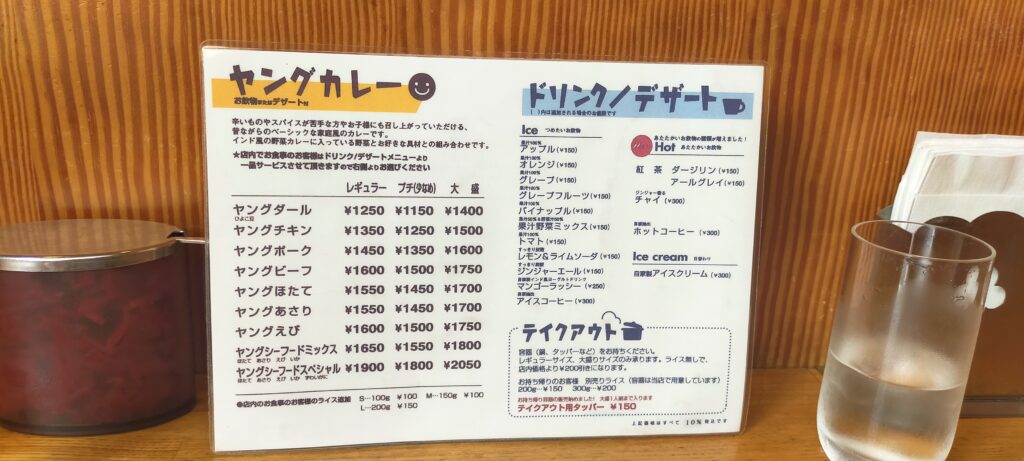 ヤングカレー
お飲物またはデザート付
辛いものやスパイスが苦手な方やお子様にも召し上がっていただける、
昔ながらのベーシックな家庭風のカレーです。
インド風の野菜カレーに入っている野菜とお好きな具材との組み合わせです。
★店内でお食事のお客様はドリンク/デザートメニューより
一品サービスさせて頂きますので右側よりお選びください
レギュラー プチ(少なめ) 大 盛
ヤングダール ¥1250 ¥1150 ¥1400
ひよこ豆
ヤングチキン ¥1350 ¥1250 ¥1500
ヤングポーク ¥1450 ¥1350 ¥1600
ヤングビーフ ¥1600 ¥1500 ¥1750
ヤングほたて ¥1550 ¥1450 ¥1700
ヤングあさり ¥1550 ¥1450 ¥1700
ヤングえび ¥1600 ¥1500 ¥1750
ヤングシーフードミックス ¥1650 ¥1550 ¥1800
ほたて あさり えび いか
ヤングシーフードスペシャル ¥1900 ¥1800 ¥2050
ほたて あさり えび いか ずわいがに
●店内のお食事のお客様のライス追加 S…100g ¥100 M…150g ¥100
L…200g ¥150
ドリンク/デザート
( )内は追加される場合のお値段です
Ice つめたいお飲物
果汁100%
アップル(¥150)
果汁100%
オレンジ(¥150)
果汁100%
グレープ(¥150)
果汁100%
グレープフルーツ(¥150)
果汁100%
パイナップル(¥150)
果汁50%&野菜汁50%
果汁野菜ミックス(¥150)
果汁100%
トマト(¥150)
すっきり炭酸
レモン&ライムソーダ(¥150)
すっきり炭酸
ジンジャーエール(¥150)
自家製インド風ヨーグルトドリンク
マンゴーラッシー(¥250)
自家抽出
アイスコーヒー(¥300)
あたたかいお飲物の種類が増えました!
Hot あたたかいお飲物
紅 茶 ダージリン(¥150)
アールグレイ(¥150)
ジンジャー香る
チャイ(¥300)
自家抽出
ホットコーヒー(¥300)
Ice cream 日替わり
自家製アイスクリーム(¥300)
テイクアウト
容器(鍋、タッパーなど)をお持ちください。
レギュラーサイズ、大盛りサイズのみ承ります。ライス無しで、
店内価格より¥200引きになります。
お持ち帰りのお客様 別売りライス(容器は当店で用意しています)
200g…¥150 300g…¥200
お持ち帰り容器の販売始めました! 大盛1人前まで入ります
テイクアウト用タッパー ¥150
上記価格はすべて 10% 税込です